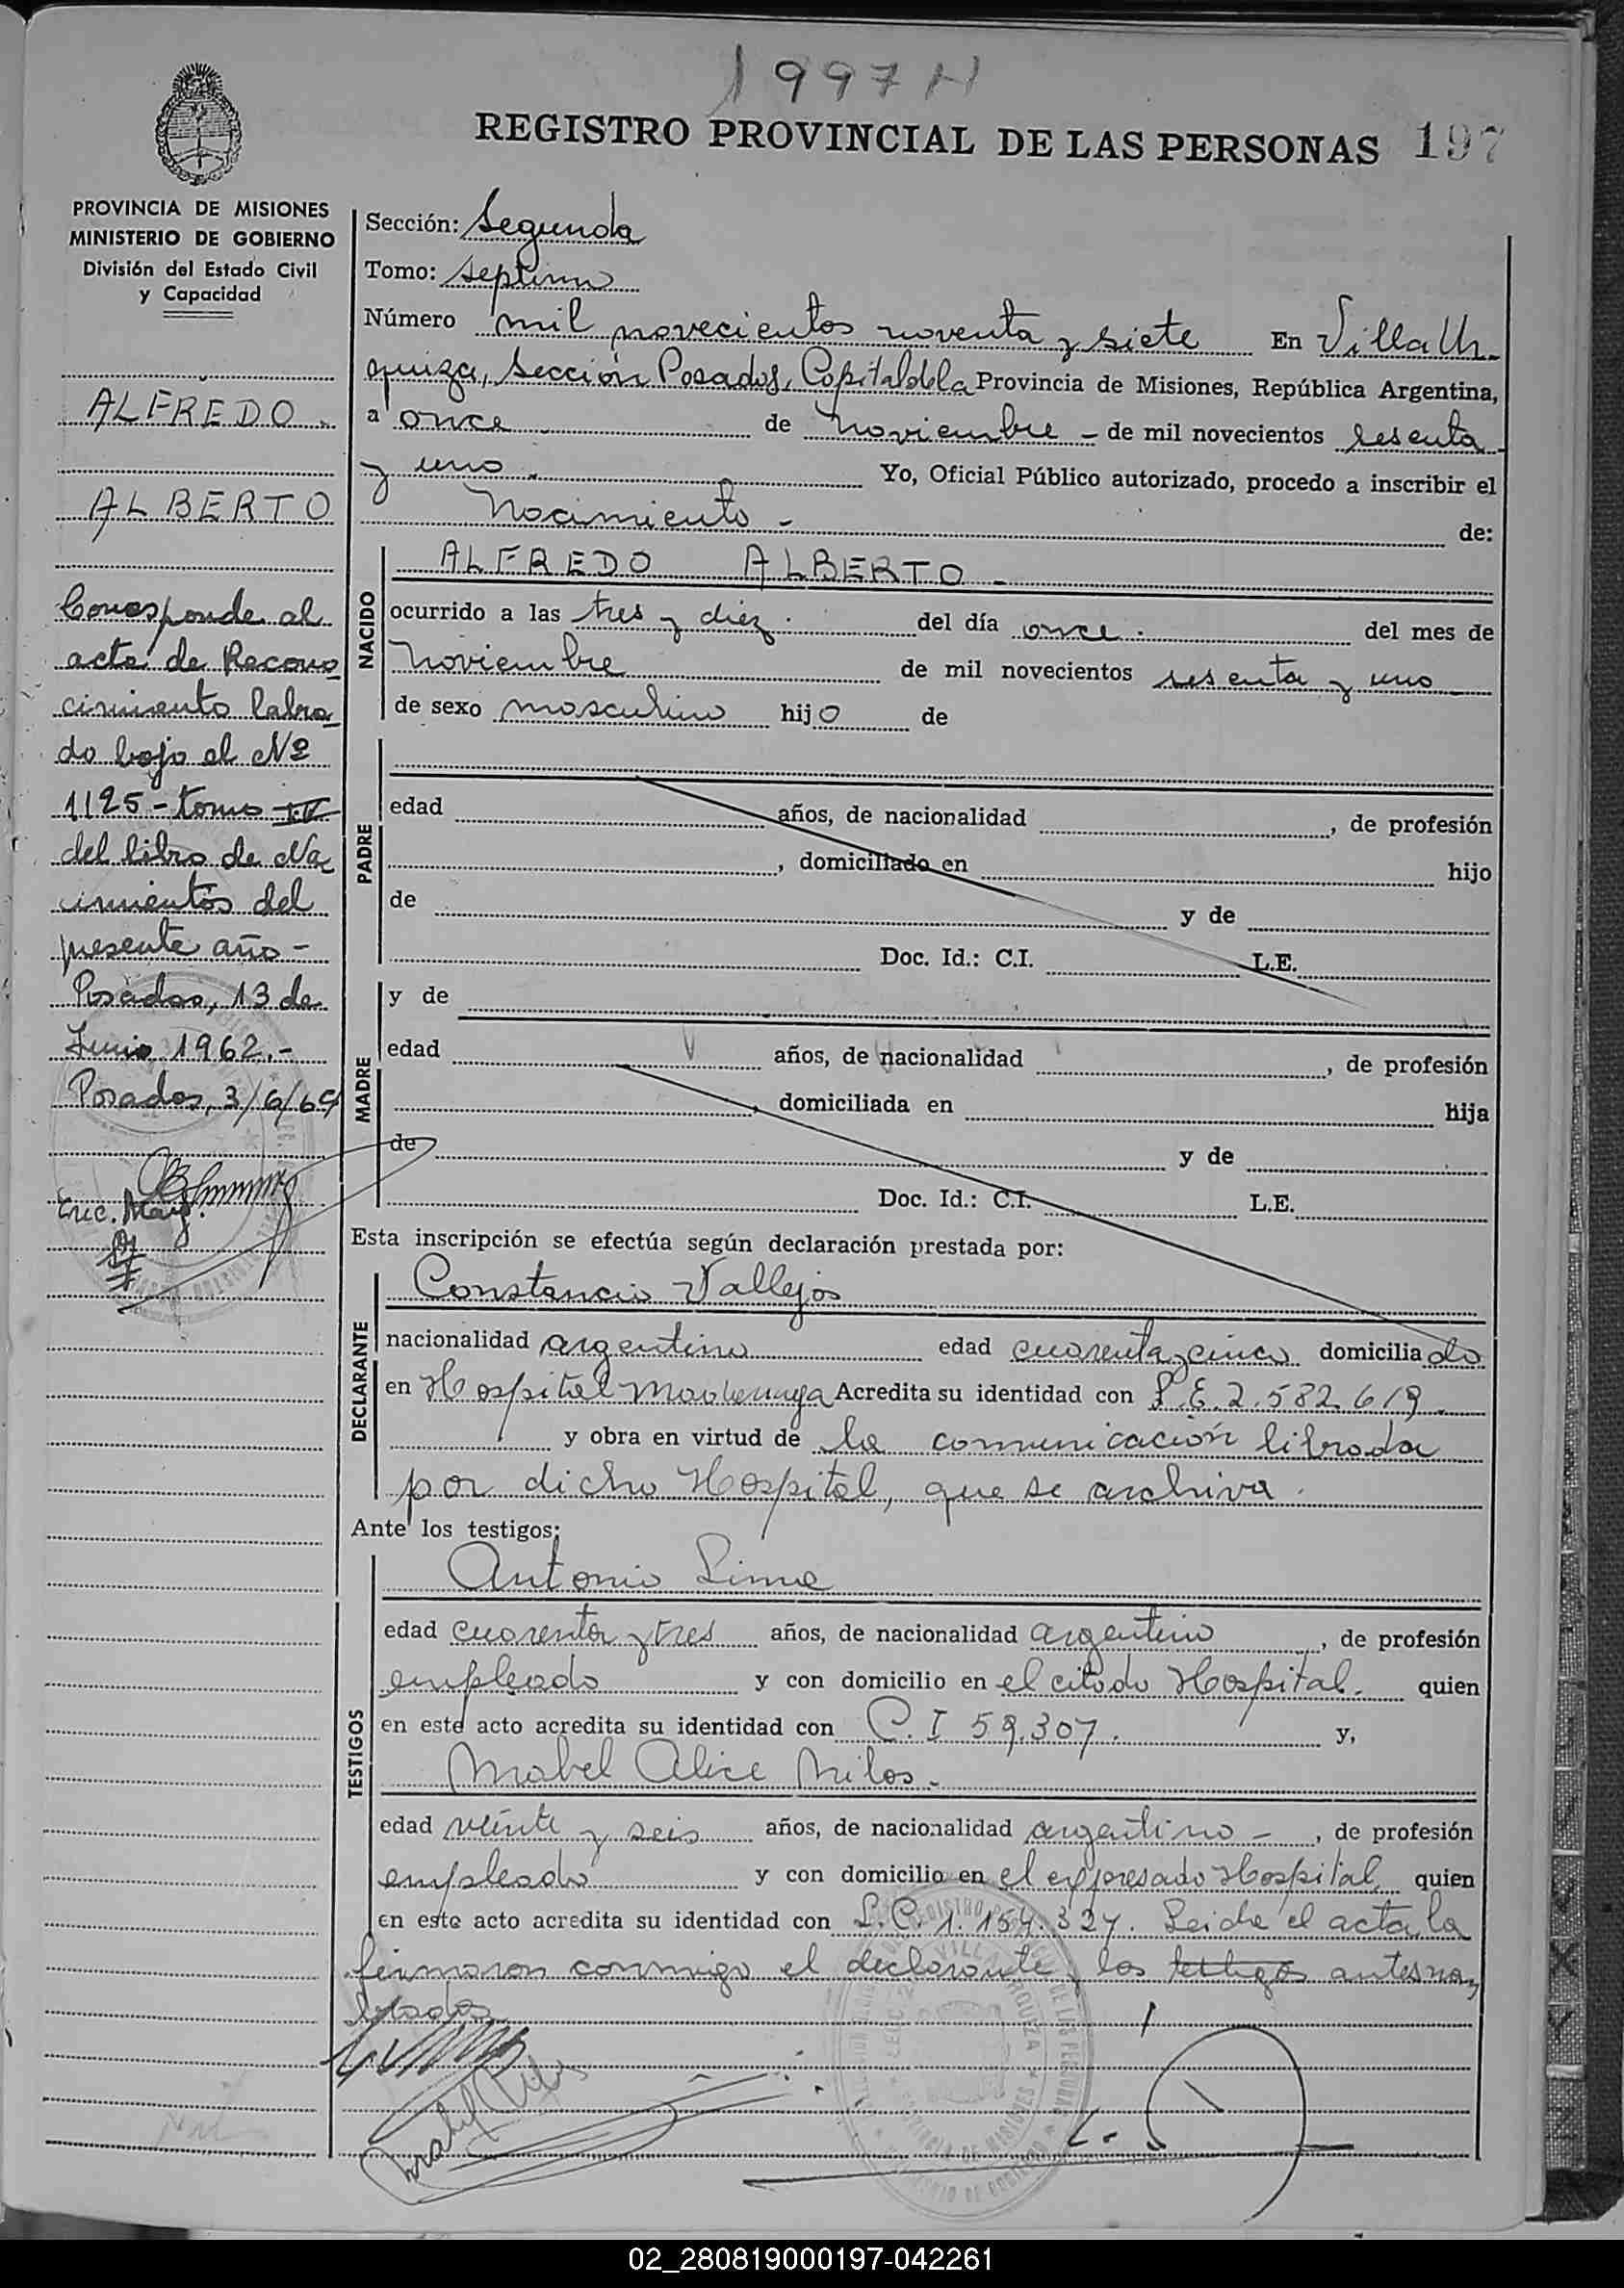 1997 N
REGISTRO PROVINCIAL DE LAS PERSONAS 197
PROVINCIA DE MISIONES
MINISTERIO DE GOBIERNO
División del Estado Civil
y Capacidad
ALFREDO
ALBERTO
Corresponde al
acta de Recono
cimiento labra
do bajo el Nº
1125 - tomo IV
del libro de Na
cimientos del
presente año -
Posadas, 13 de
Junio 1962.-
Posadas, 3/6/69
Enc. May.
Sección: Segunda
Tomo: septimo
Número mil novecientos noventa y siete En Villa Ur-
quiza, Sección Posadas, Capital de la Provincia de Misiones, República Argentina,
a once de noviembre - de mil novecientos sesenta
y uno Yo, Oficial Público autorizado, procedo a inscribir el
Nacimiento - de:
NACIDO
ALFREDO ALBERTO -
ocurrido a las tres y diez. del día once. del mes de
noviembre de mil novecientos sesenta y uno
de sexo masculino hijo de
PADRE
edad años, de nacionalidad , de profesión
, domiciliado en hijo
de y de
Doc. Id.: C.I. L.E.
MADRE
y de
edad años, de nacionalidad , de profesión
, domiciliada en hija
de y de
Doc. Id.: C.I. L.E.
Esta inscripción se efectúa según declaración prestada por:
DECLARANTE
Constancio Vallejos
nacionalidad argentino edad cuarenta y cinco domiciliado
en Hospital Acredita su identidad con L.E. 2.582.619
y obra en virtud de la comunicación librada
por dicho Hospital, que se archiva.
Ante los testigos:
TESTIGOS
Antonio Lima
edad cuarenta y tres años, de nacionalidad argentino , de profesión
empleado y con domicilio en el citado Hospital. quien
en este acto acredita su identidad con C.I 59.307. y,
Mabel Alice Milos.
edad veinte y seis años, de nacionalidad argentino - , de profesión
empleado y con domicilio en el expresado Hospital, quien
en este acto acredita su identidad con L.C. 1.154.327. Leida el acta la
firmaron conmigo el declarante y los testigos antesnom
brados
02_280819000197-042261